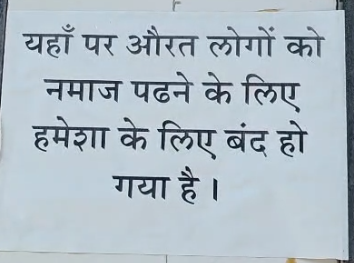 यहाँ पर औरत लोगों को
नमाज पढने के लिए
हमेशा के लिए बंद हो
गया है।